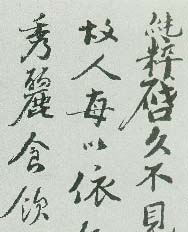 純粹啓久不見
故人每以依
秀麗食飲